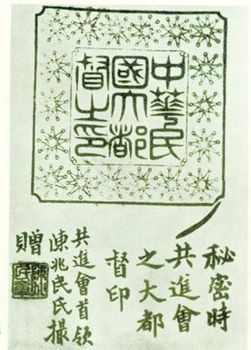 中華民
國大都
督之印
秘密時
共進會
之大都
督印
共進會首領
陳兆民氏撮
贈